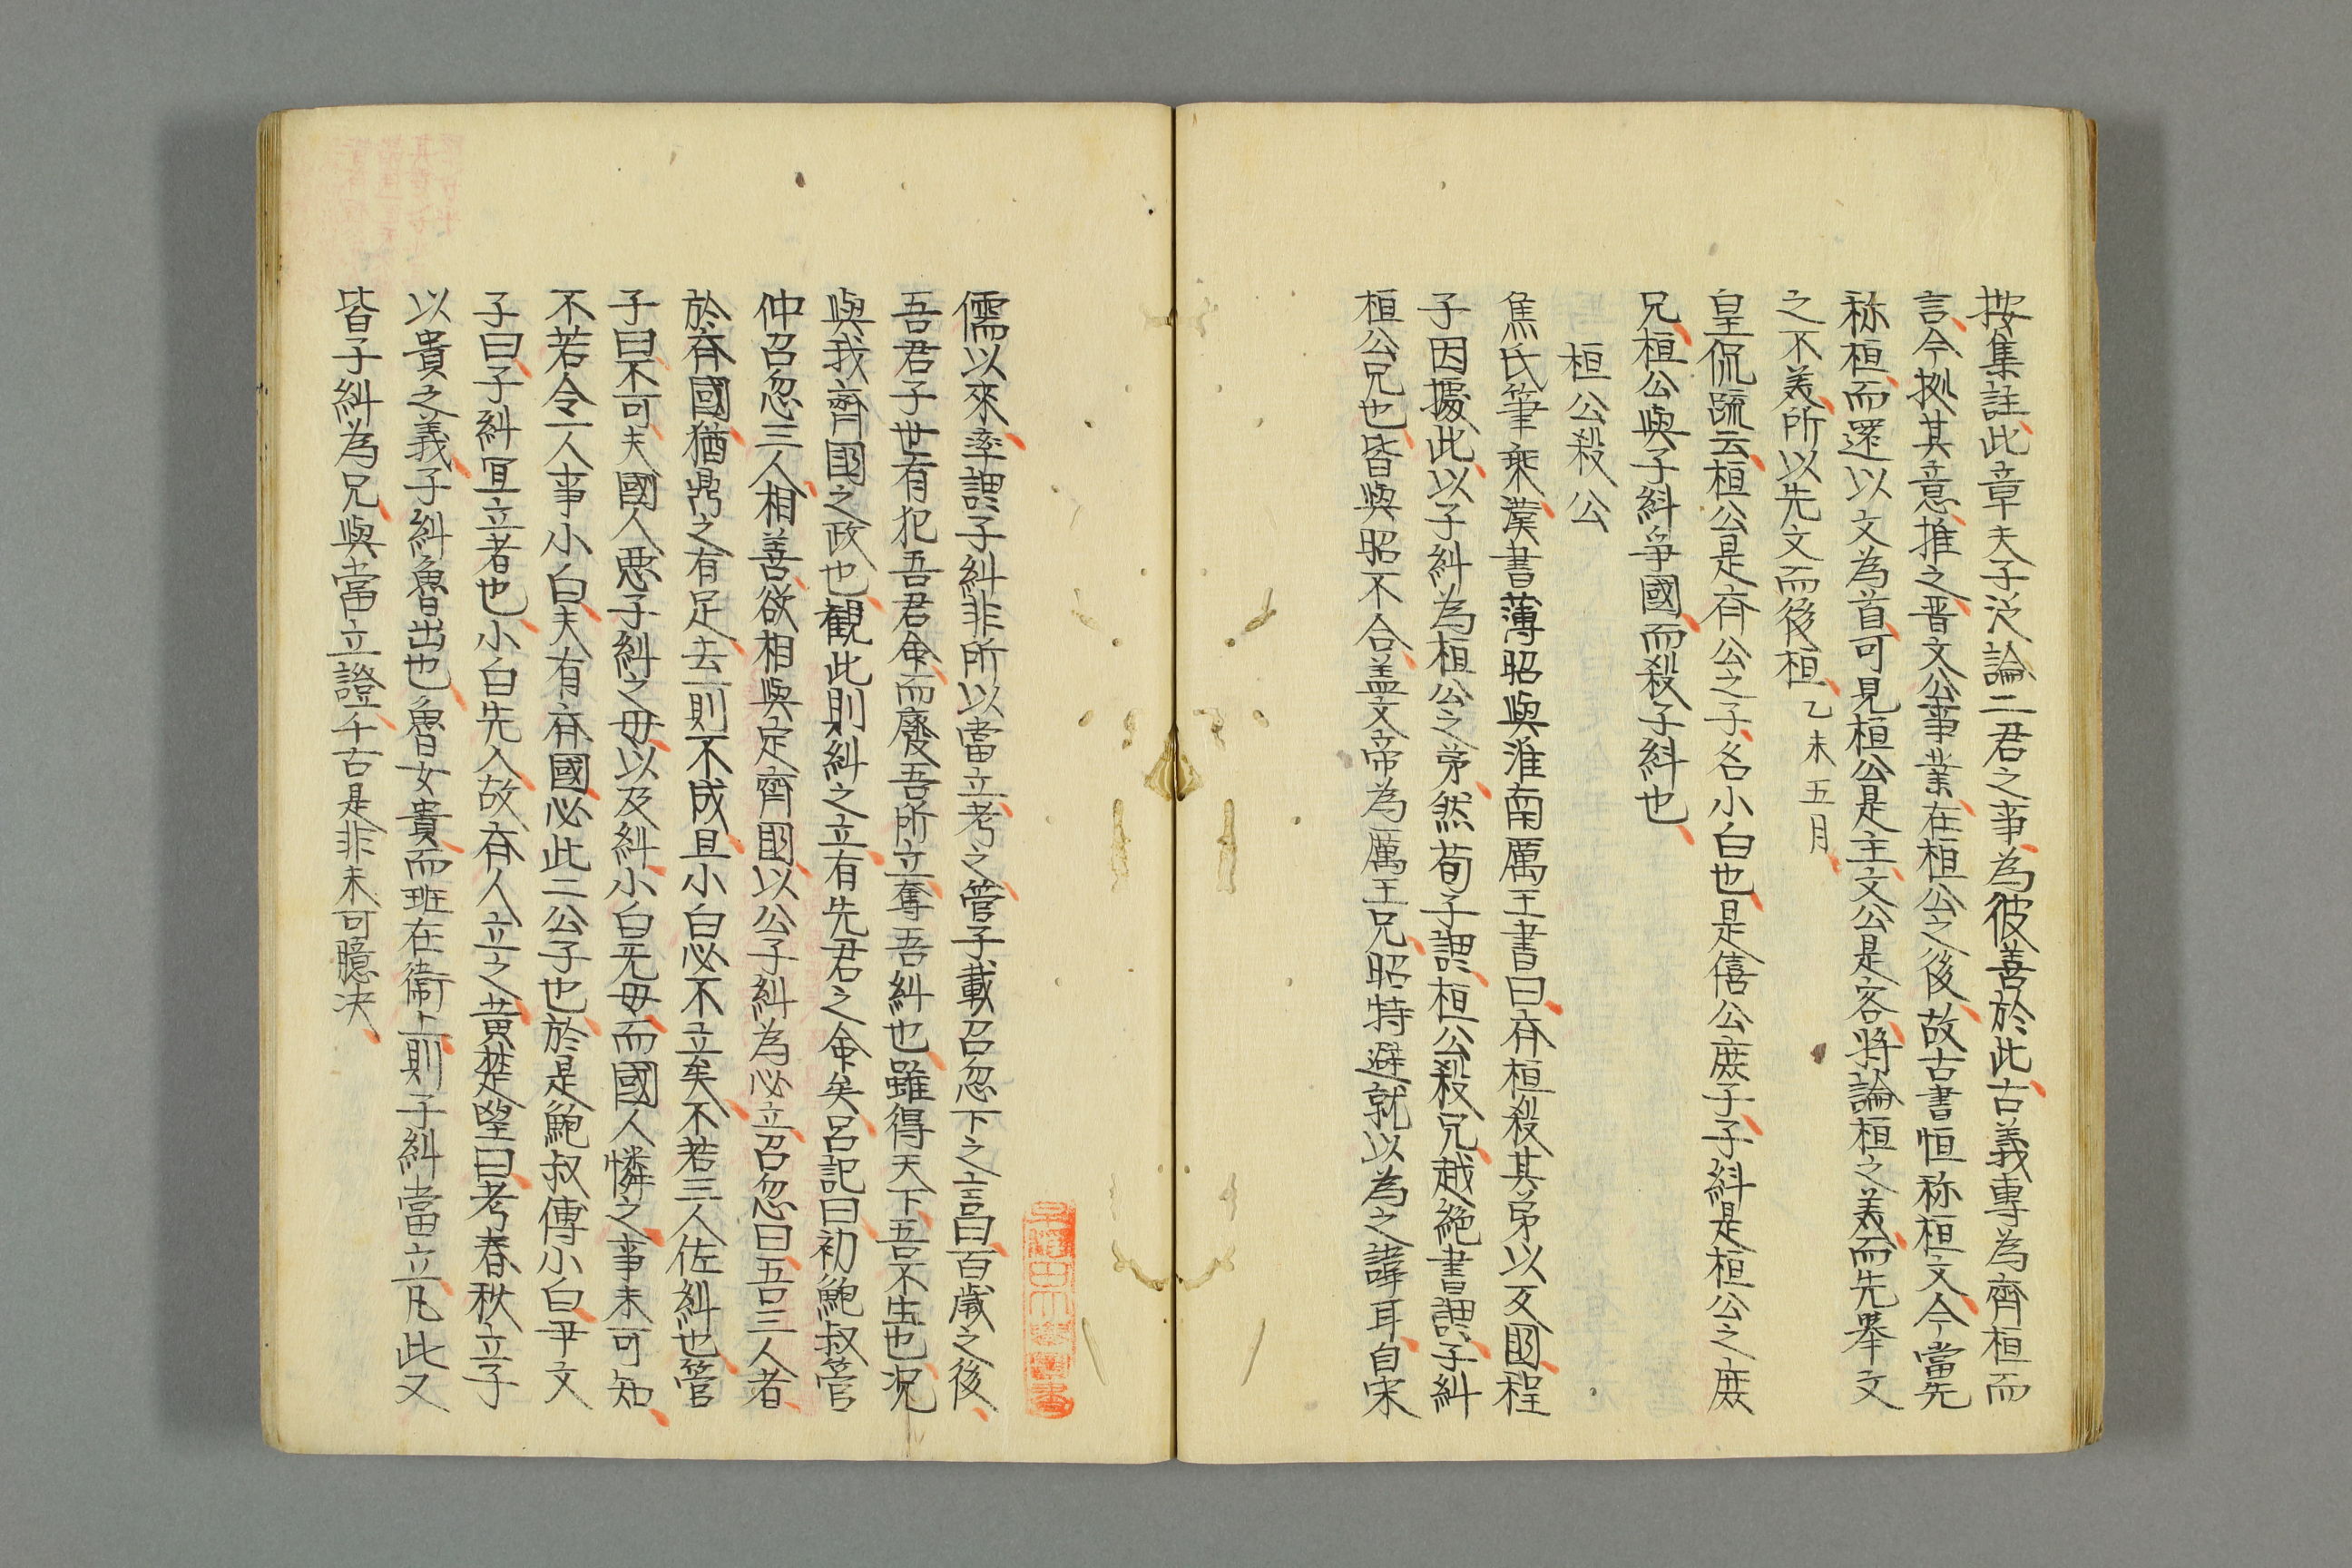 按集註此章夫子泛論二君之事為彼善於此古義專為齊桓而
言今拠其意推之晋文公事業在桓公之後故古書恒称桓文今當先
称桓而還以文為首可見桓公是主文公是客将論桓之美而先舉文
之不美所以先文而後桓乙未五月
皇侃疏云桓公是斉公之子名小白也是僖公庶子子糾是桓公之庶
兄桓公與子糾爭國而殺子糾也
桓公殺公
焦氏筆乗漢書薄昭與淮南厲王書曰斉桓殺其弟以反國程
子因據此以子糾為桓公之弟然荀子謂桓公殺兄越絶書謂子糾
桓公兄也皆與昭不合盖文帝為厲王兄昭特避就以為之諱耳自宋
儒以來率謂子糾非所以當立考之管子載召忽下之言曰百歳之後
吾君子世有犯吾君命而廢吾所立奪吾糾也雖得天下吾不生也况
與我齊國之政也観此則糾之立有先君之命矣呂記曰初鮑叔管
仲召忽三人相善欲相與定齊國以公子糾為必立召忽曰吾三人者
於斉國猶鼎之有足去一則不成且小白必不立矣不若三人佐糾也管
子曰不可夫國人悪子糾之毋以及糾小白无毋而國人憐之事未可知
不若令一人事小白夫有斉國必此二公子也於是鮑叔傅小白尹文
子曰子糾冝立者也小白先入故斉人立之黄楚望曰考春秋立子
以貴之義子糾魯出也魯女貴而班在衛上則子糾當立凡此又
皆子糾為兄與當立證千古是非未可臆决